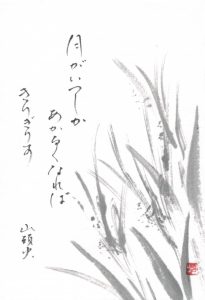 月がいつしか
あかるくなれば
きりぎりす
山頭火